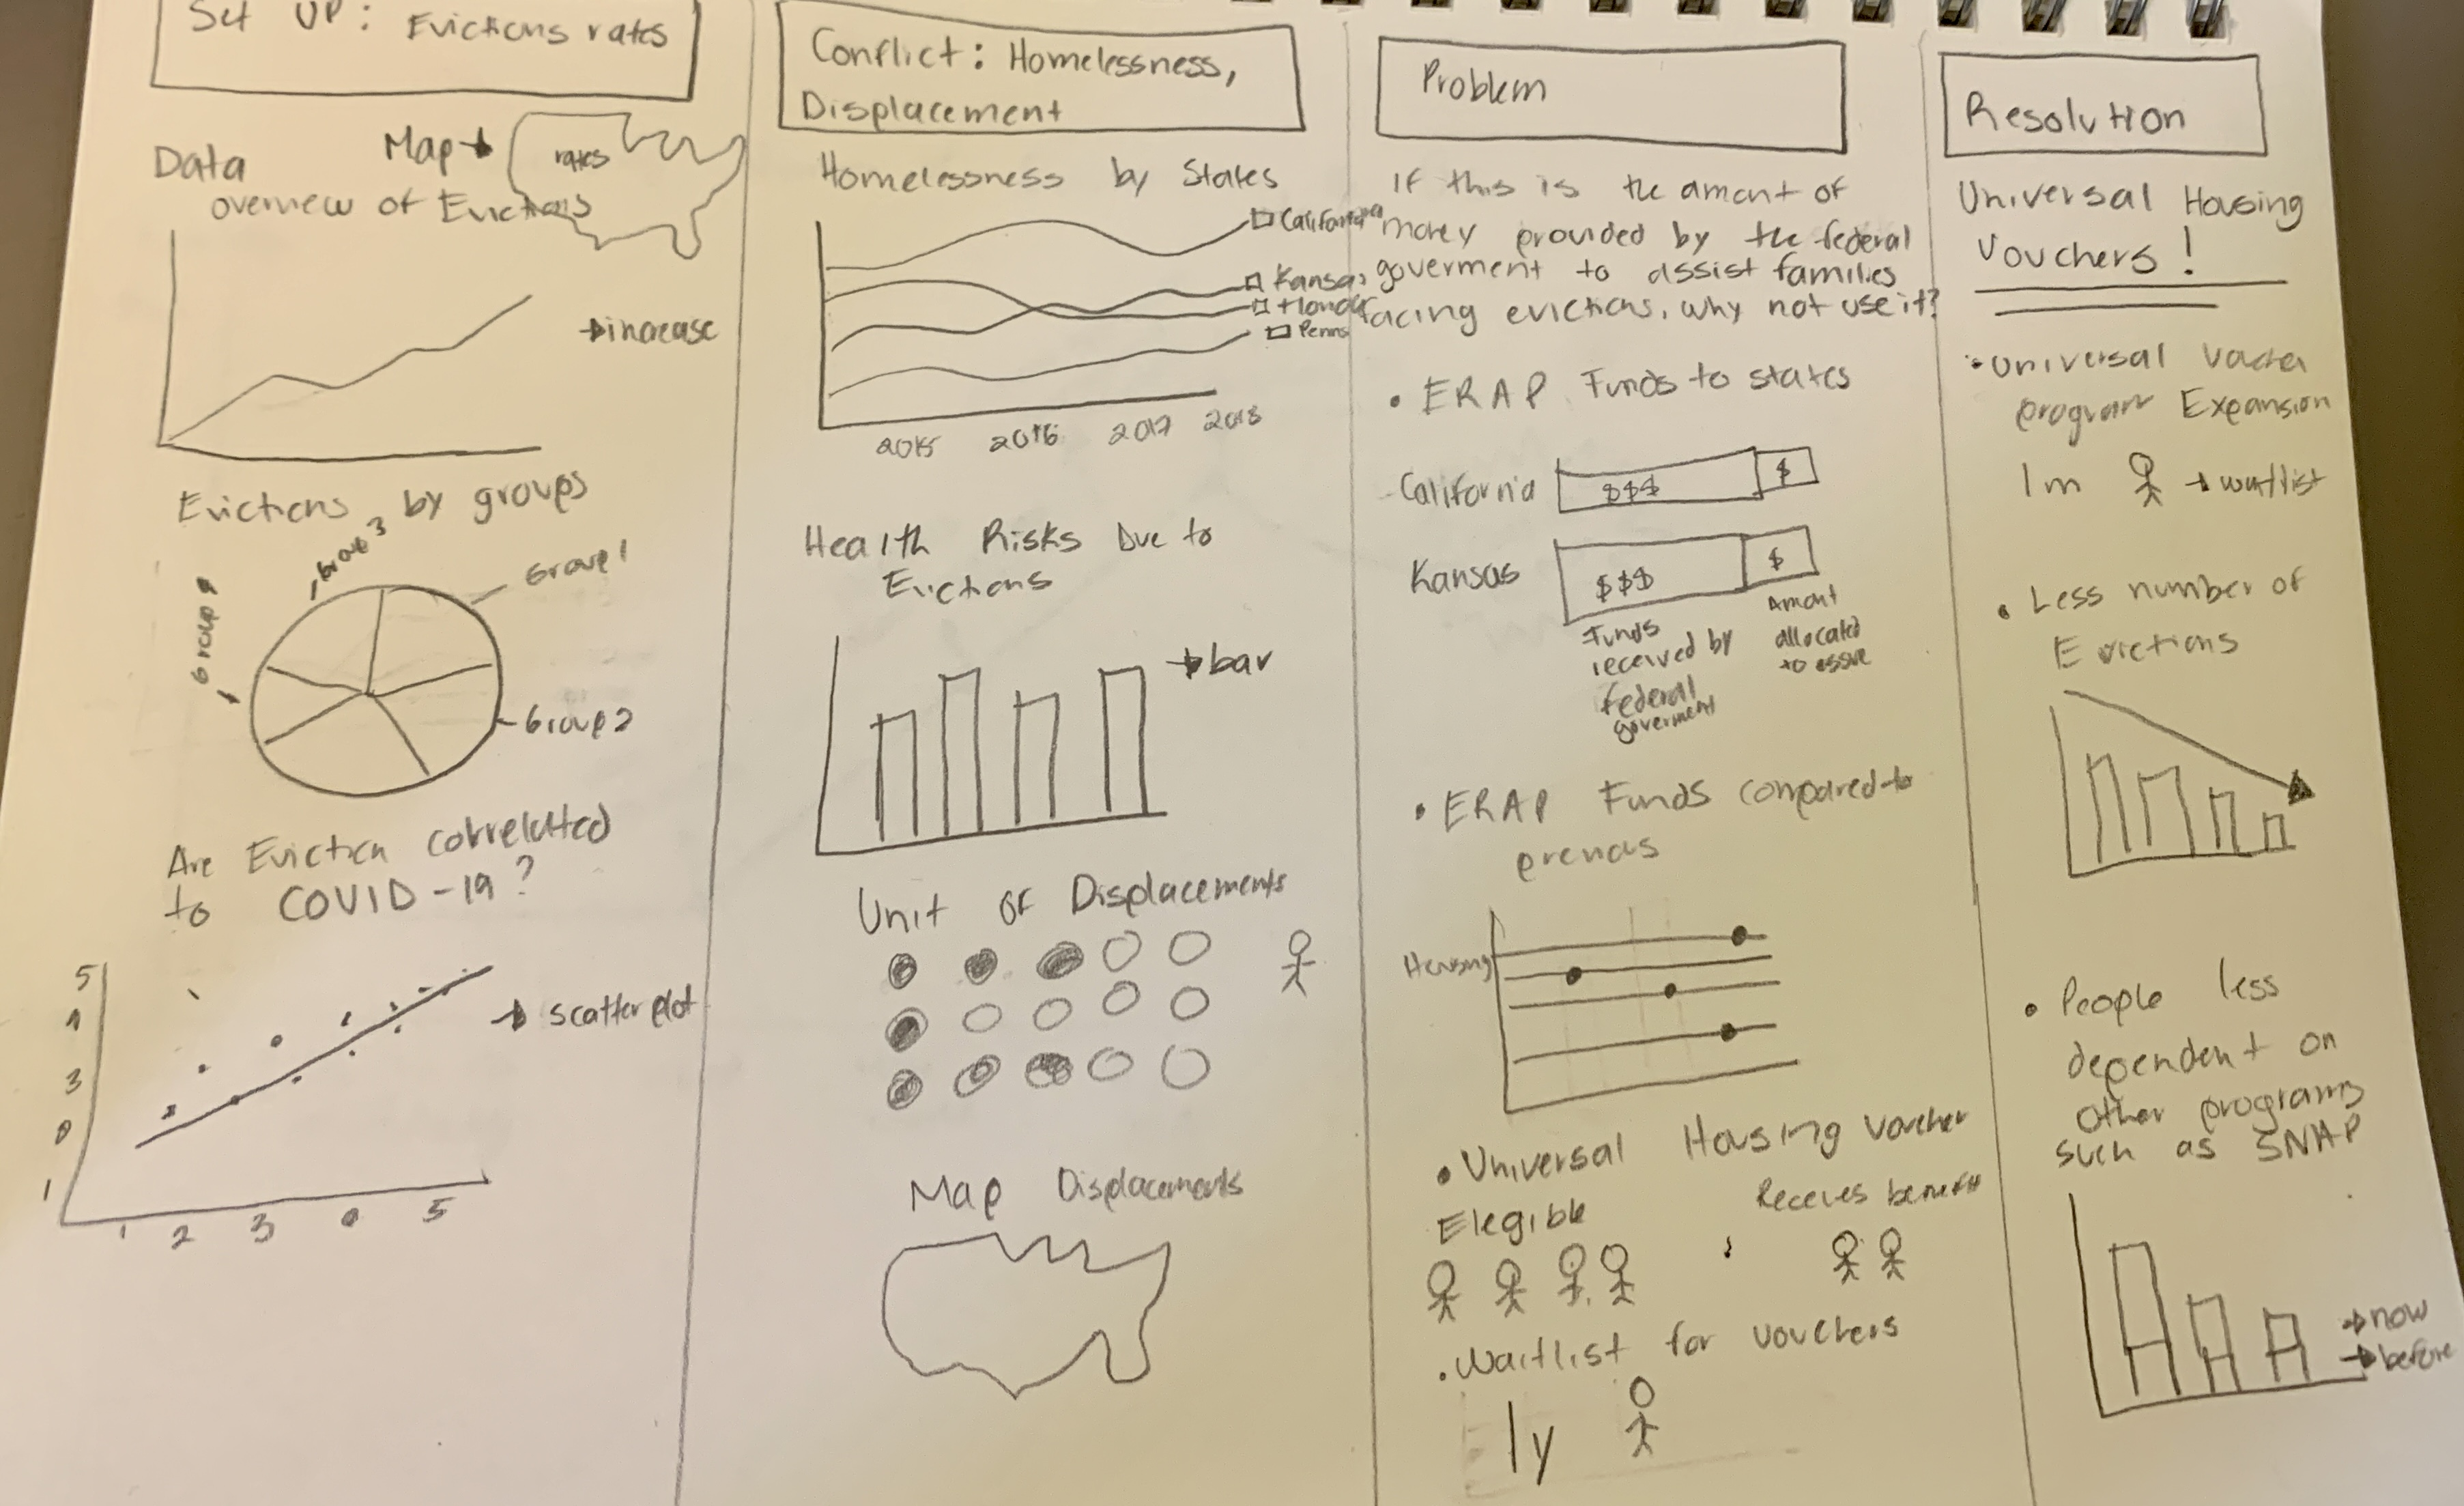 Set UP: Evictions rates
Data
overview of Evictions
Map
rates
increase
Evictions by groups
Group 3
Group 1
Group 2
Are Eviction correlated
to COVID-19?
5
3
1
scatter plot
1 2 3 5
Conflict: Homelessness,
Displacement
Homelessness by States
California
Kansas
Penns
2015 2016 2017 2018
Health Risks Due to
Evictions
bar
Unit of Displacements
Map Displacements
Problem
If this is the amont of
money provided by the federal
goverment to assist families
facing evictions, why not use it?
• ERAP Funds to states
California $$$ $
Kansas $$$ $
Funds
received by
federal
goverment
Amont
allocated
to
• ERAP Funds compared to
Housing
• Universal Housing Voucher
Elegible
Receives benefit
• Waitlist for vouchers
1y
Resolution
Universal Housing
Vouchers!
• Universal
program Expansion
1m
waitlist
• Less number of
Evictions
• People less
dependent on
other programs
such as SNAP
now
before